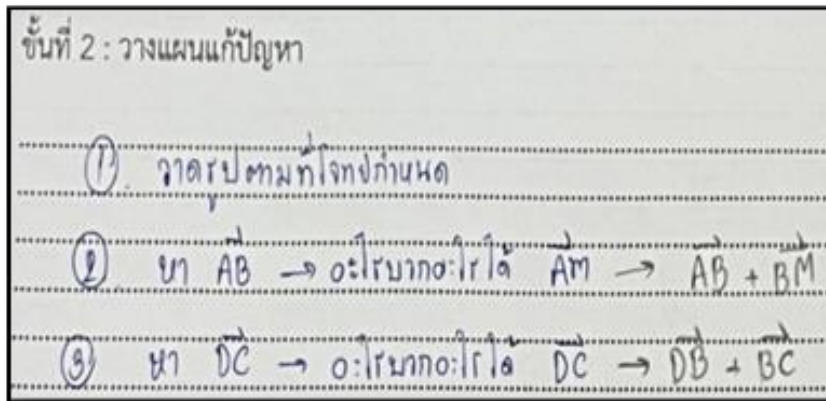 ขั้นที่ 2 : วางแผนแก้ปัญหา
① วาดรูปตามที่โจทย์กำหนด
② หา \overrightarrow{AB} → อะไรบวกอะไรได้ \overrightarrow{AM} → \overrightarrow{AB} + \overrightarrow{BM}
③ หา \overrightarrow{DC} → อะไรบวกอะไรได้ \overrightarrow{DC} → \overrightarrow{DB} + \overrightarrow{BC}